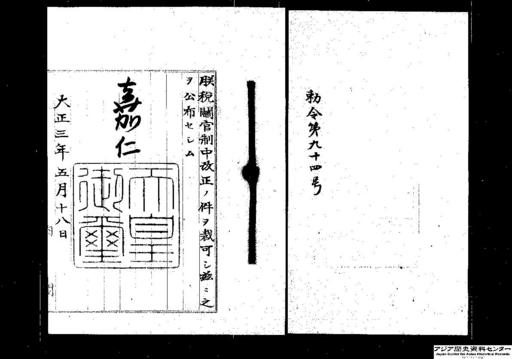 勅令第九十四号
朕税關官制中改正ノ件ヲ裁可シ茲ニ之
ヲ公布セシム
嘉仁
天皇
御璽
大正三年五月十八日
アジア歴史資料センター
Japan Center for Asian Historical Records